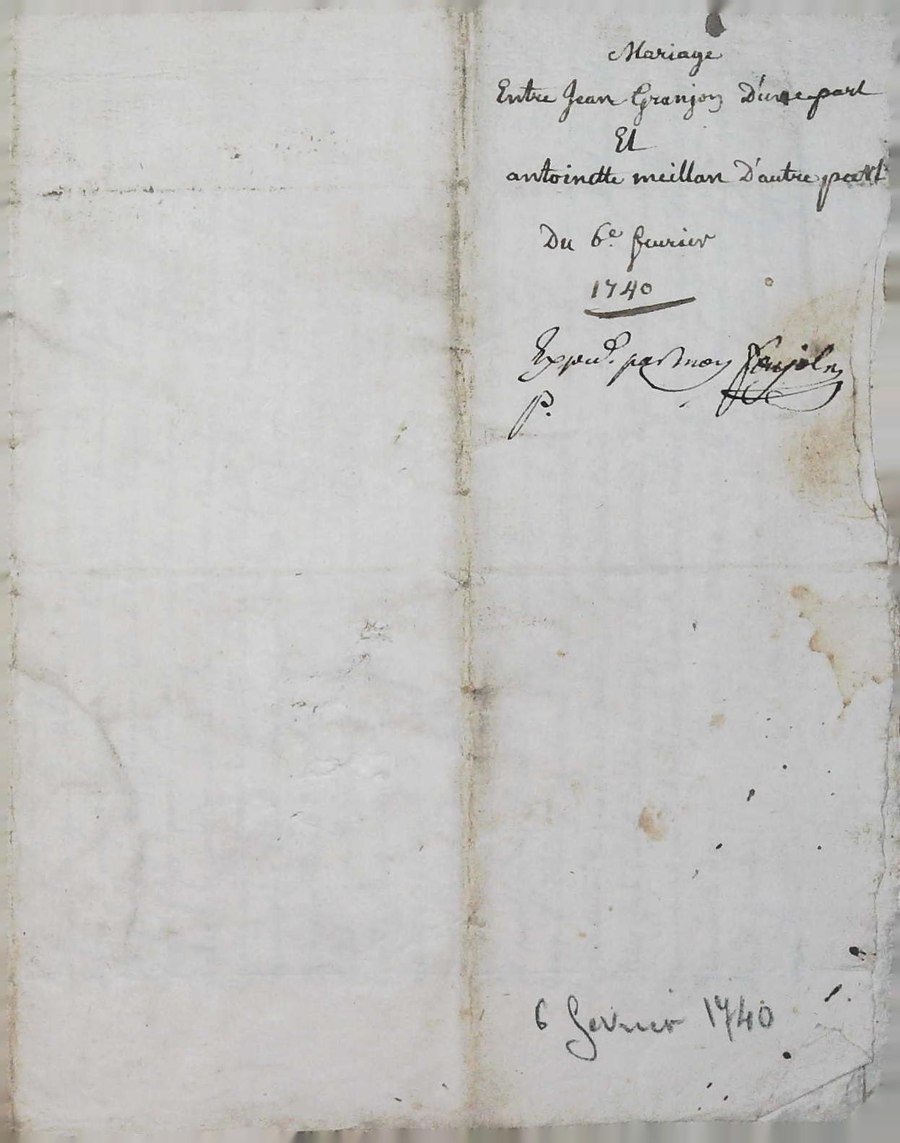 Mariage
Entre Jean Granjon D'une part
Et
antoinette meillan D'autre part
Du 6e. feurier
1740
Expedié. par moy
P.
6 fevrier 1740